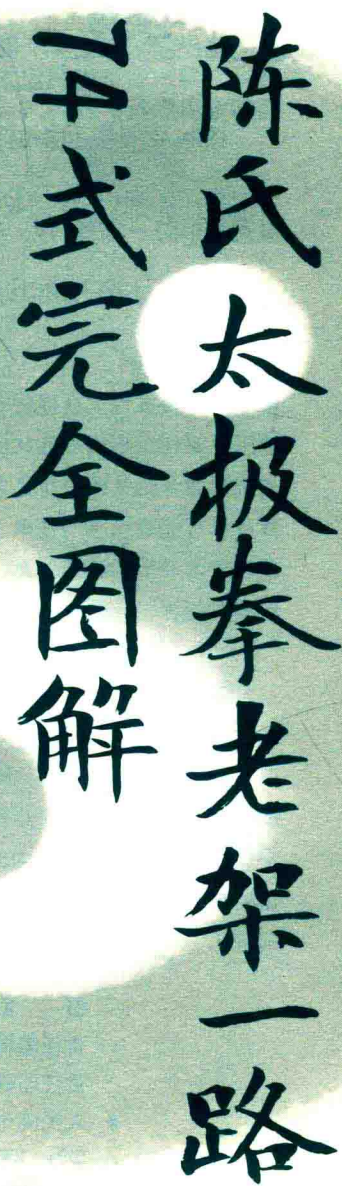 陈氏太极拳老架一路
74式完全图解